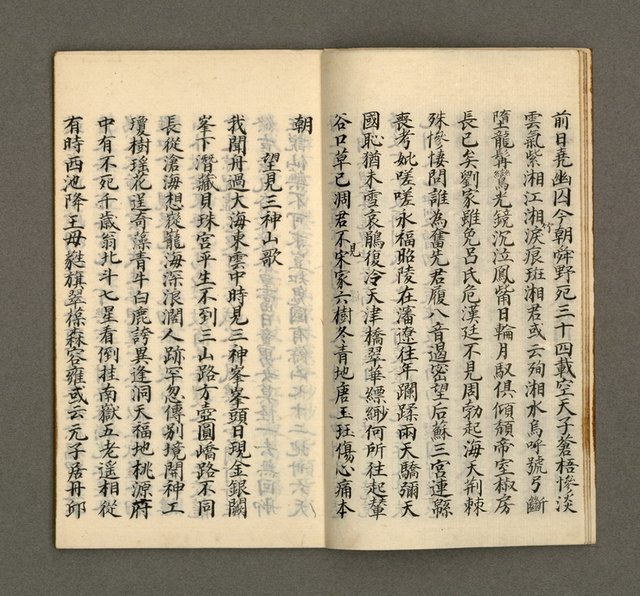 前日堯幽囚今朝舜野死三十四載空天子蒼梧慘淡
雲氣紫湘江湘淚痕斑湘君或云殉湘水烏呼號弓斷
墮龍髯鸞光鏡沉泣鳳觜日輪月馭俱傾頹帝室椒房
長已矣劉家雖免呂氏危漢廷不見周勃起海天荆棘
殊慘悽問誰為奮先君履八音遏密望后蘇三宮連縣
喪考妣嗟嗟永福昭陵在瀋遼往年躝蹂兩天驕彌天
國恥猶未雪哀鵑復泠天津橋翠華縹緲何所往起輦
谷口草已凋君不見宋家六樹冬青地唐玉珏傷心痛本
朝
望見三神山歌
我聞舟過大海東雲中時見三神峯峯頭日現金銀闕
峯下潛藏貝珠宮平生不到三山路方壺圓嶠路不同
長從滄海想髮龍海深浪濶人跡罕忽傳別境開神工
瓊樹瑶花送奇蕊青牛白鹿誇異逢洞天福地桃源府
中有不死千歲翁北斗七星看倒挂南嶽五老遥相從
有時西池降王母甤旗翠𢂶森容雍或云元子居丹邱